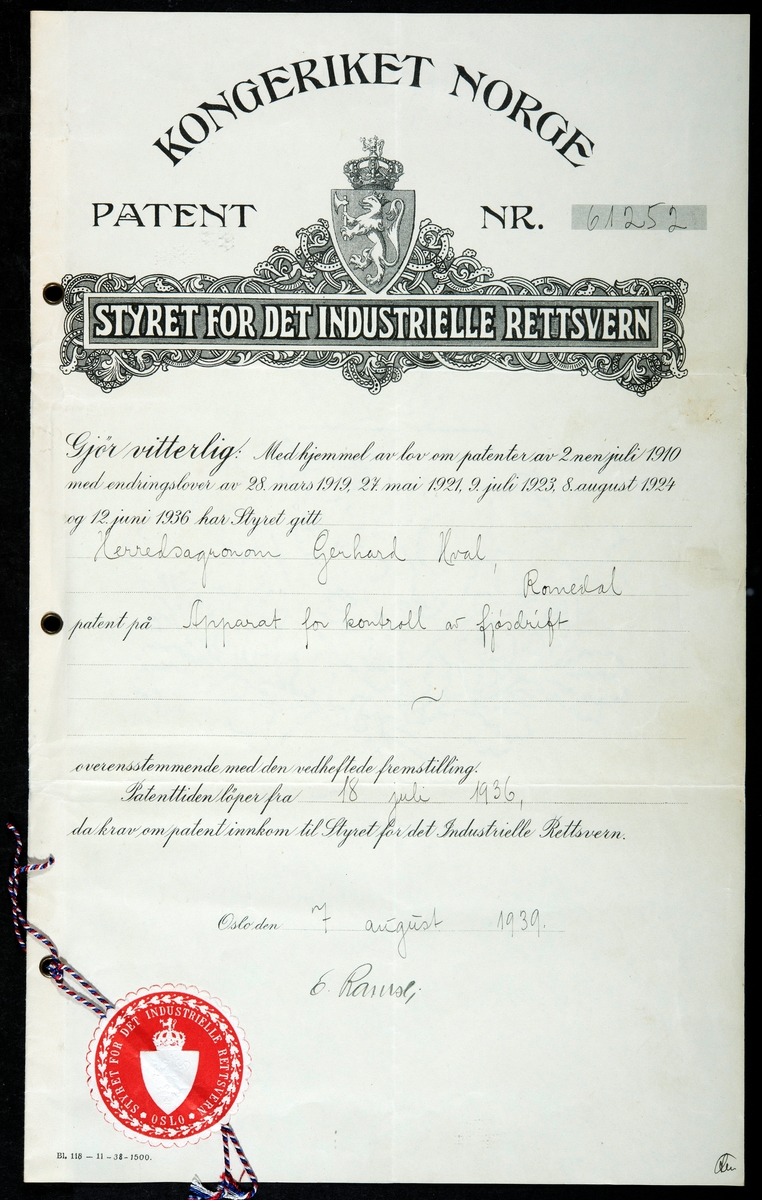 KONGERIKET NORGE
PATENT NR. 61252
STYRET FOR DET INDUSTRIELLE RETTSVERN
Gjör vitterlig: Med hjemmel av lov om patenter av 2nen juli 1910
med endringslover av 28. mars 1919, 27. mai 1921, 9. juli 1923, 8. august 1924
og 12. juni 1936 har Styret gitt
Herredsagronom Gerhard Hval,
Romedal
patent på Apparat for kontroll av fjøsdrift
overensstemmende med den vedheftede fremstilling.
Patenttiden löper fra 18 juli 1936,
da krav om patent innkom til Styret for det Industrielle Rettsvern.
Oslo, den 7 august 1939.
E.
STYRET FOR DET INDUSTRIELLE RETTSVERN
OSLO
Bl. 118 — 11 - 38 - 1500.